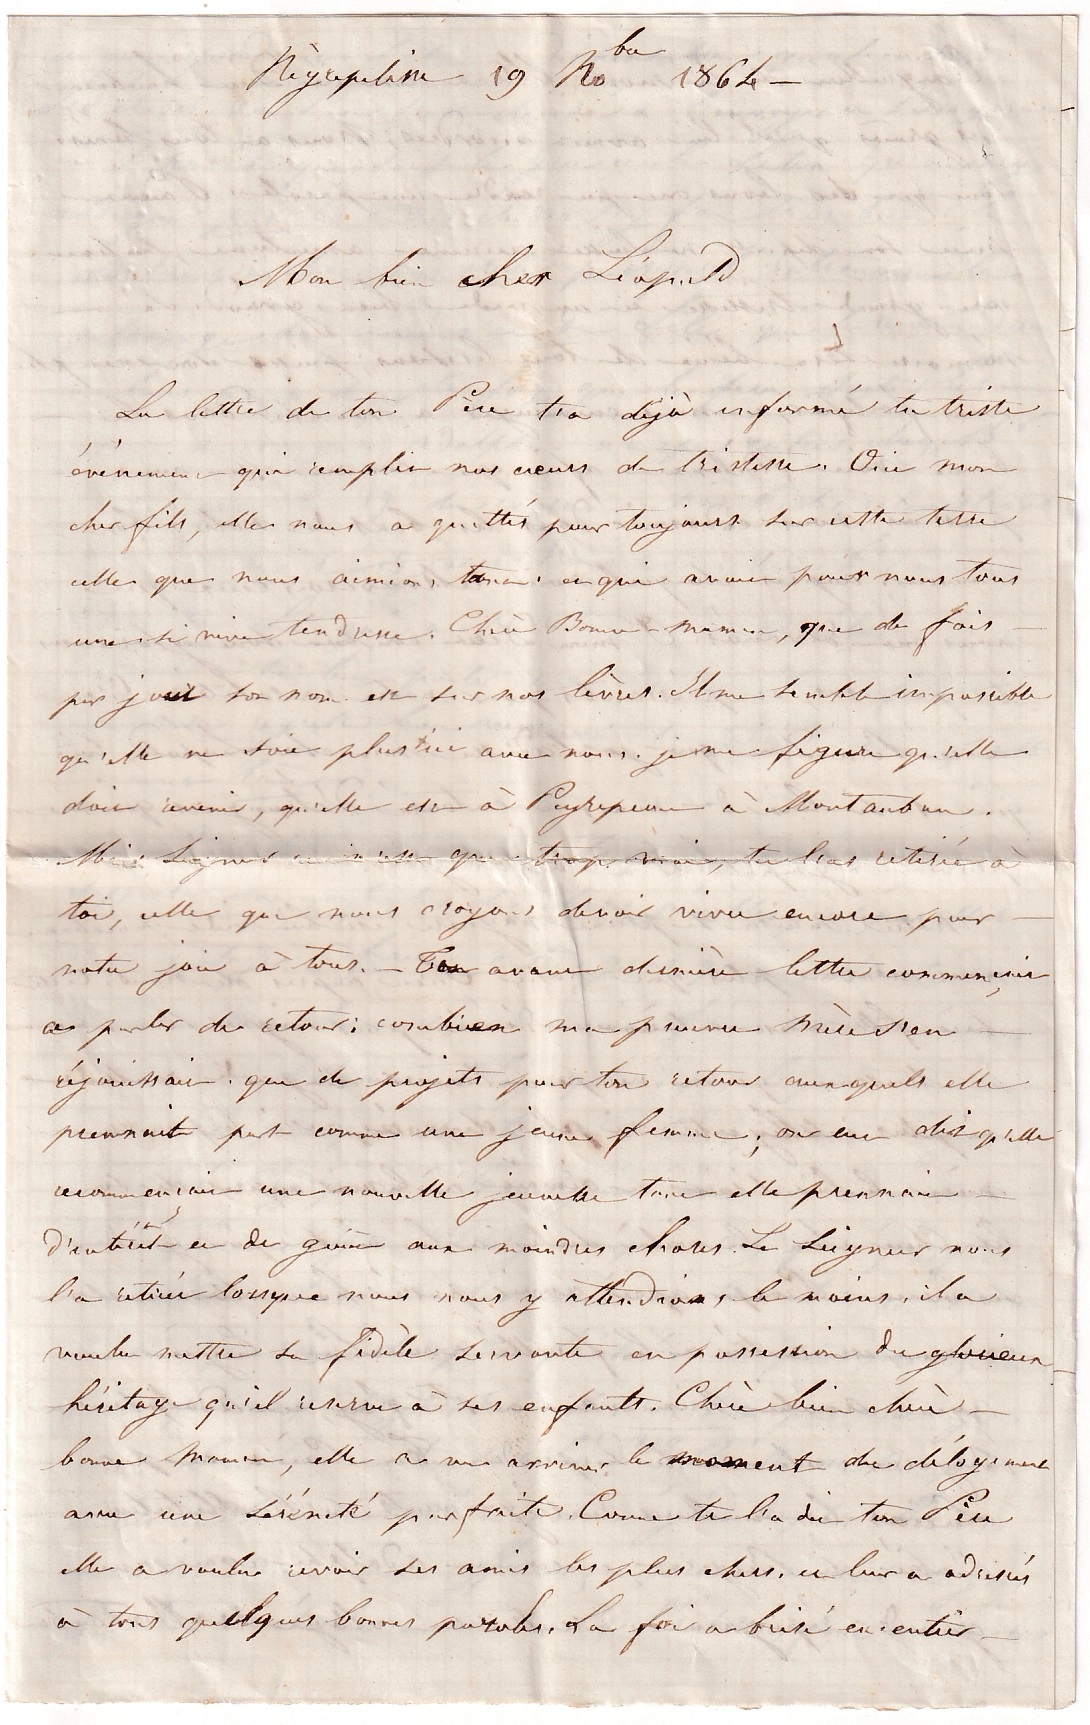 Nègrepelisse 19 Nobre 1864 —
Mon bien cher Léopold
La lettre de ton Père t'a déjà informé du triste
événement qui remplit nos cœurs de tristesse. Oui mon
cher fils, elle nous a quittés pour toujours sur cette terre
celle que nous aimions tant et qui avait pour nous tous
une si vive tendresse. Chère Bonne-maman, que de fois —
par jour son nom est sur nos lèvres. Il me semble impossible
qu'elle ne soit plus ici avec nous. je me figure qu'elle
doit revenir, qu'elle est à à Montauban.
Mais Seigneur que trop vrai, tu l'as retirée à
toi, celle que nous croyions devoir vivre encore pour —
notre joie à tous. — Ton avant dernière lettre commençait
a parler de retour; combien ma pauvre Mère s'en —
réjouissait. que de projets pour ton retour auxquels elle
prennait part comme une jeune femme; on eut dit qu'elle
recommençait une nouvelle jeunesse tant elle prennait —
d'intérêt et de goût aux moindres choses. Le Seigneur nous
l'a retirée lorsque nous nous y attendions le moins, il a
voulu mettre sa fidèle servante en possession du glorieux
héritage qu'il reserve à ses enfants. Chère bien chère —
bonne Maman, elle a vu arriver le moment du délogement
avec une sérénité parfaite. Comme te l'a dit ton Père
elle a voulu revoir ses amis les plus chers, et leur a adressés
à tous quelques bonnes paroles. La foi a brisé en entier —